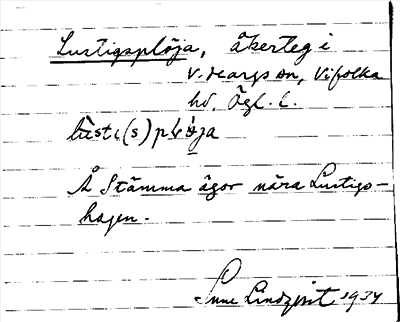 Lustigsplöja, åkerteg i
V. Hargs sn, Vifolka
hd, Ögl. l.
lùsti(s)plöja
Å Stämma ägor nära Lustigs-
hagen.
Sune Lindqvist 1934